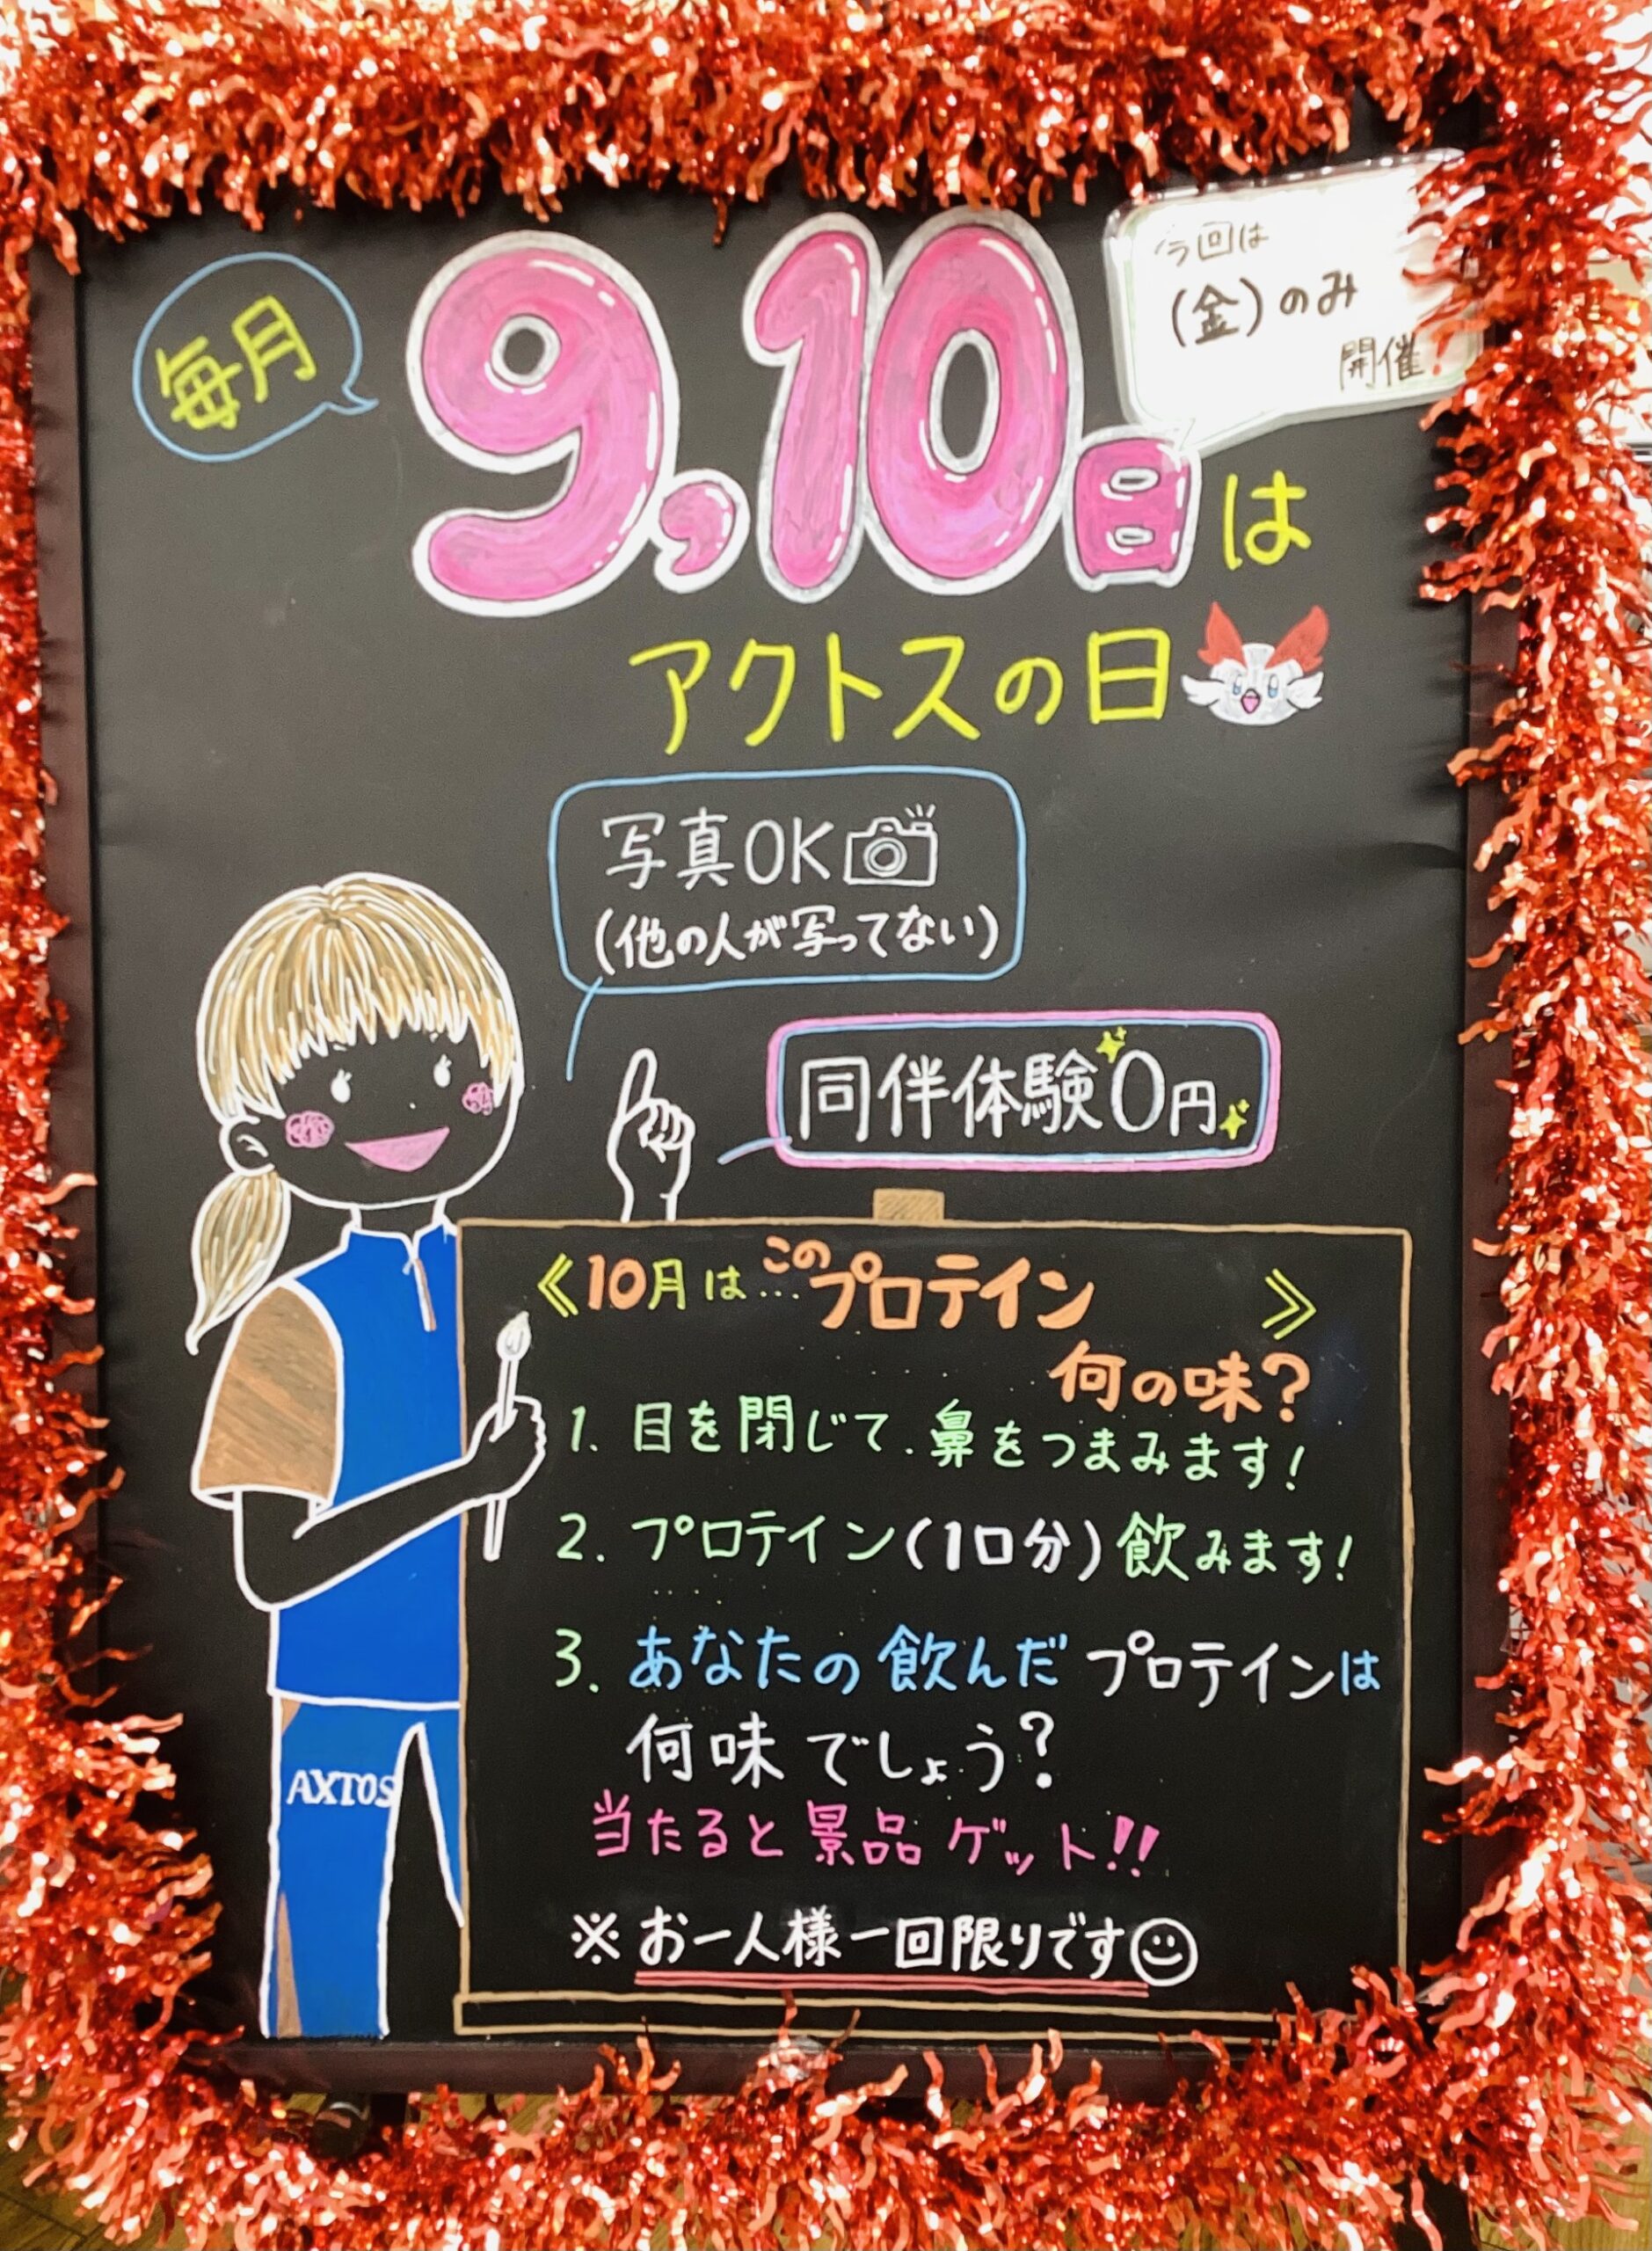 毎月
9,10日は
今回は
(金)のみ
開催!
アクトスの日
写真OK
(他の人が写ってない)
同伴体験0円
《10月は…このプロテイン
何の味?》
1. 目を閉じて、鼻をつまみます!
2. プロテイン(1口分)飲みます!
3. あなたの飲んだプロテインは
何味でしょう?
当たると景品ゲット!!
※お一人様一回限りです
AXTOS